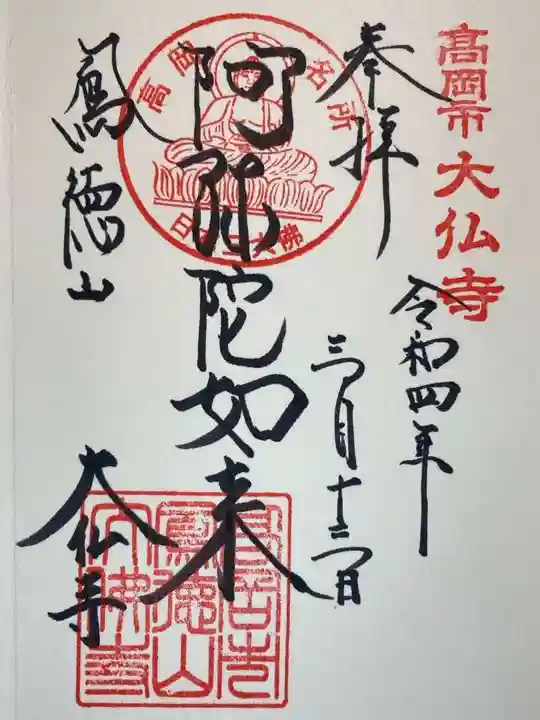 髙岡市大仏寺
奉拝
令和四年
三月十三日
高岡名所
日本三大佛
阿弥陀如来
鳳徳山
大仏寺
高岡市
鳳徳山
大佛寺